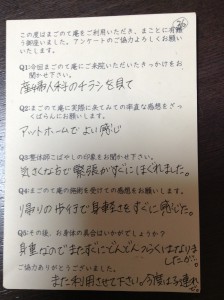 この度はまごのて庵をご利用いただき、まことに有難
う御座いました。アンケートのご協力よろしくお願い
いたします。
Q1:今回まごのて庵にご来院いただいたきっかけをお
聞かせ下さい。
産婦人科のチラシを見て
Q2:まごのて庵に実際に来てみての率直な感想をざっ
くばらんにお願いします。
アットホームでよい感じ
Q3:整体師こばやしの印象をお聞かせ下さい。
気さくな方で緊張がすぐにほぐれました。
Q4:まごのて庵の施術を受けての感想をお願いします。
帰りの歩行で身軽さをすぐに感じた。
Q5:その後、お身体の具合はいかがでしょうか?
身重なのでまたすぐにどんどんつらくはなりま
したが。
ご協力ありがとうございました。
また利用させて下さい。今度は子連れ